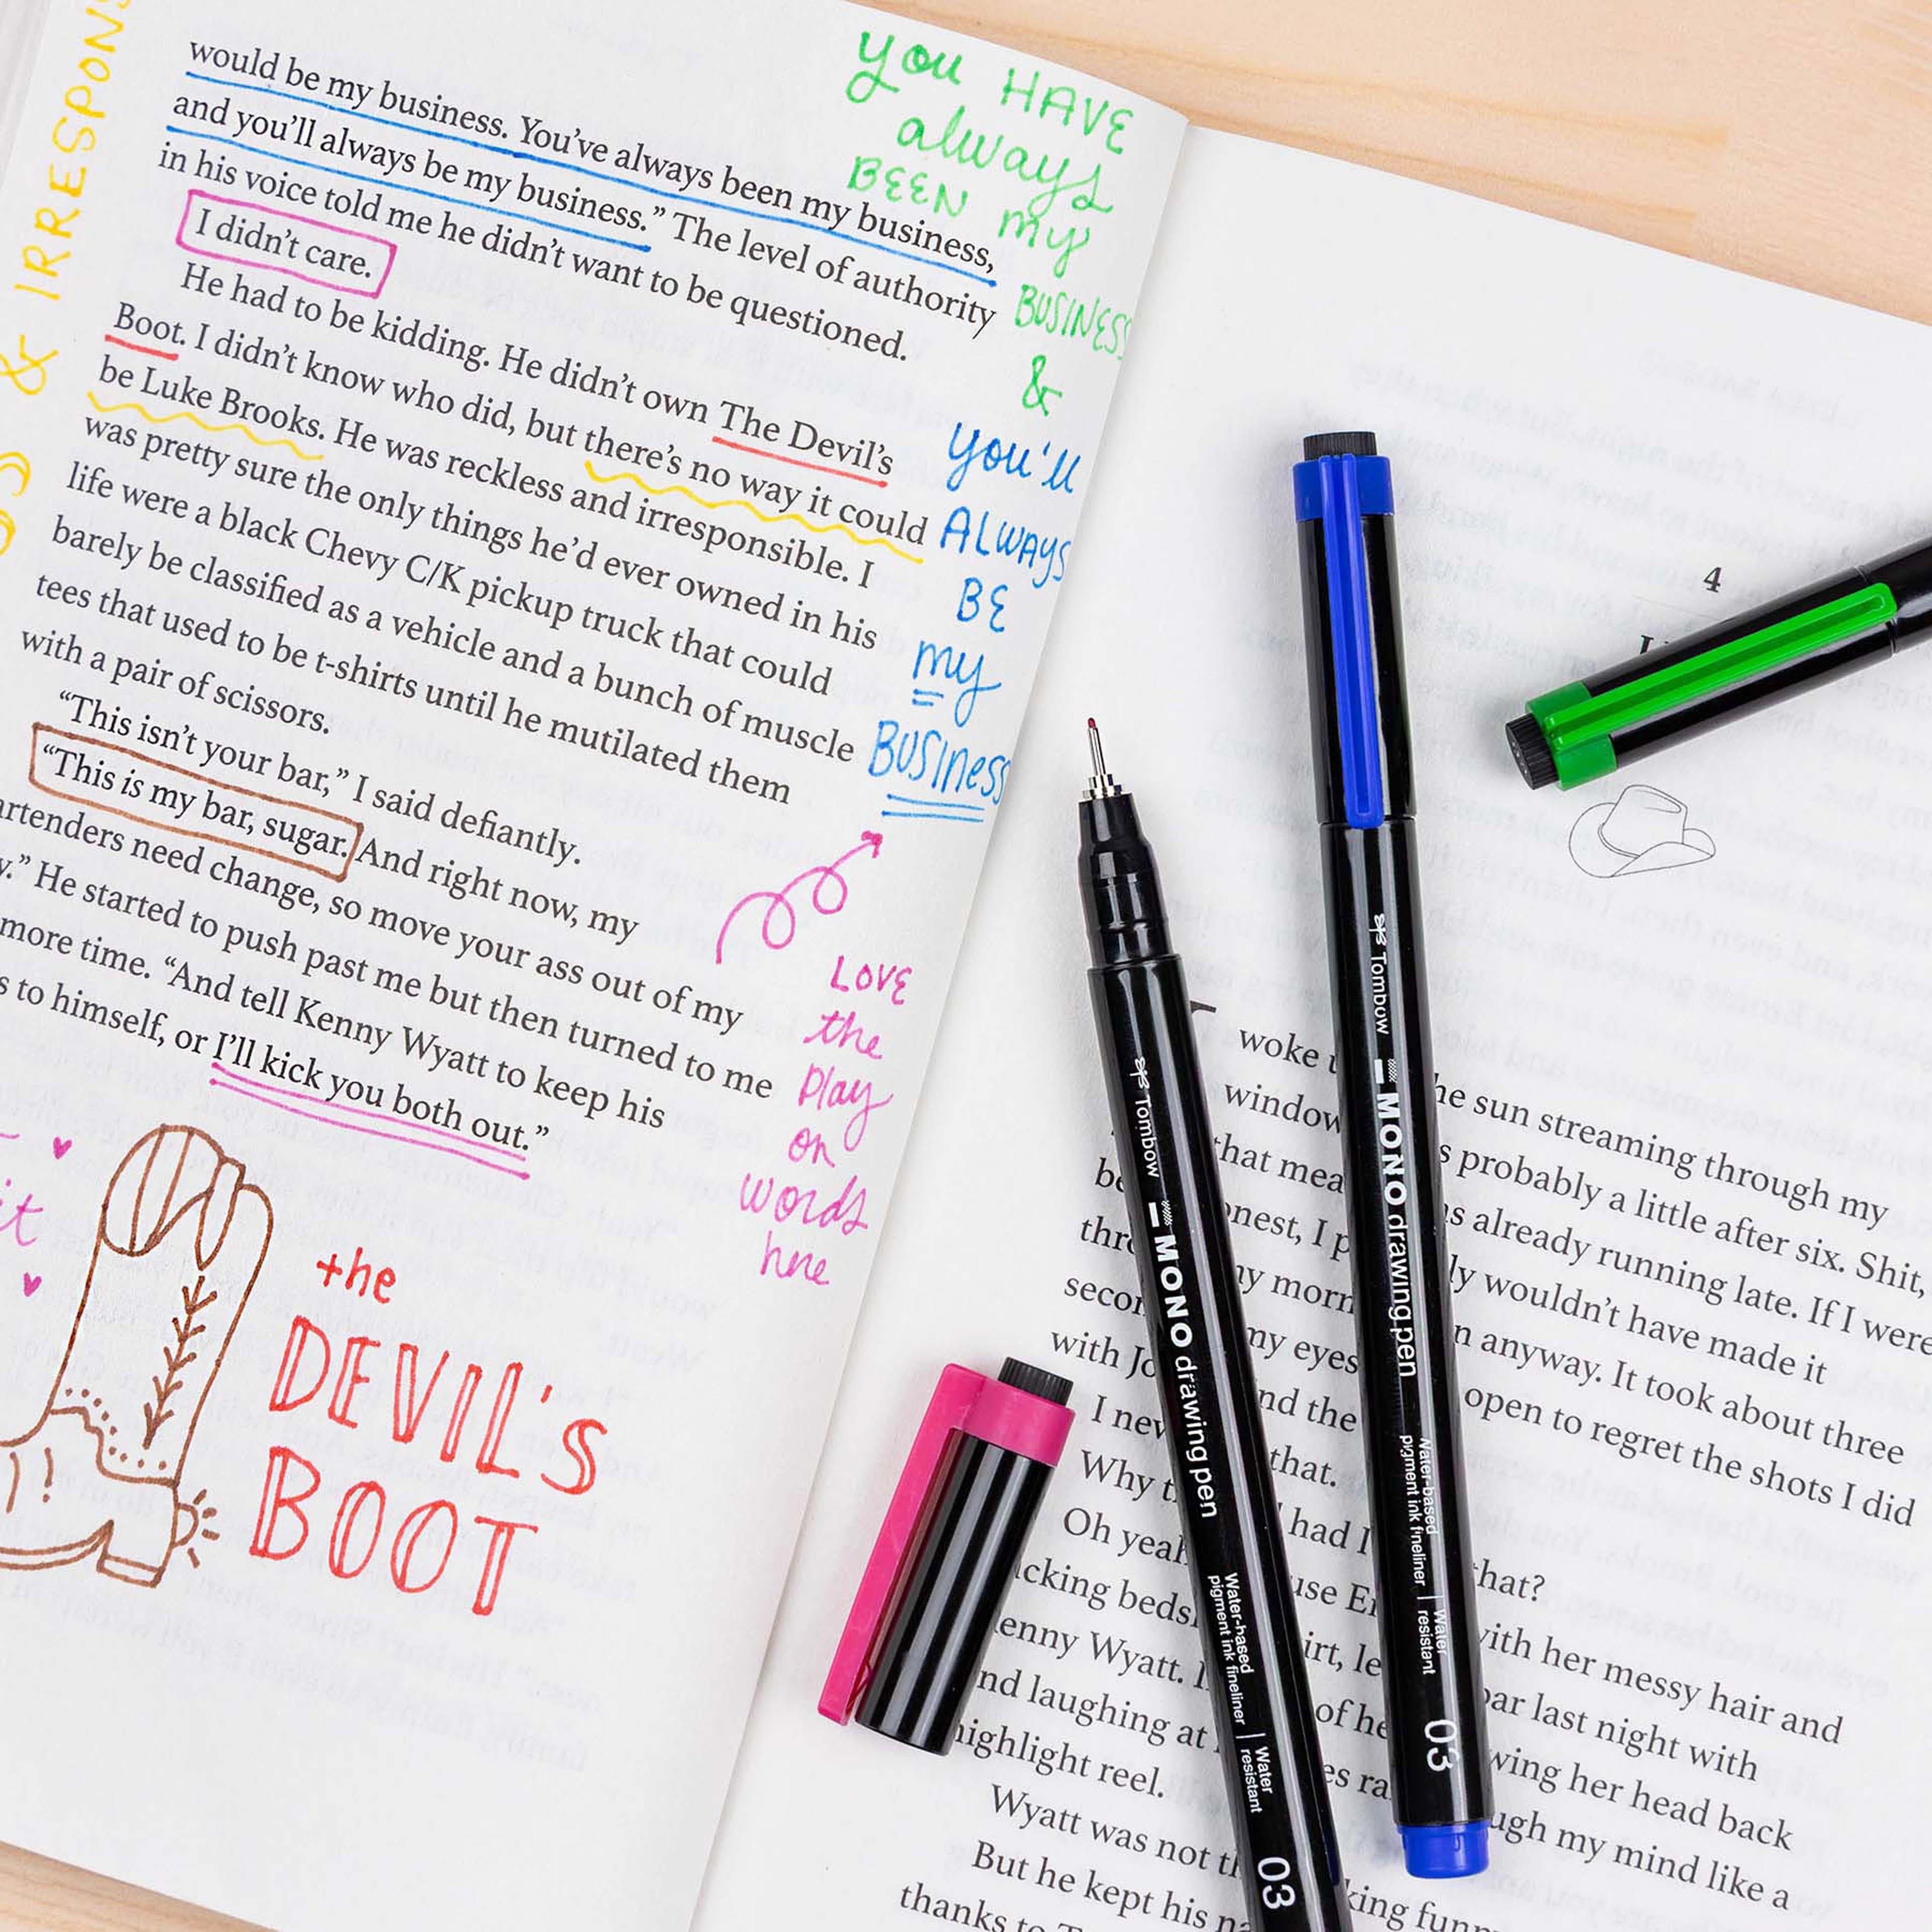 & IRRESPONS
would be my business. You've always been my business,
and you'll always be my business." The level of authority
in his voice told me he didn't want to be questioned.
I didn't care.
He had to be kidding. He didn't own The Devil's
Boot. I didn't know who did, but there's no way it could
be Luke Brooks. He was reckless and irresponsible. I
was pretty sure the only things he'd ever owned in his
life were a black Chevy C/K pickup truck that could
barely be classified as a vehicle and a bunch of muscle
tees that used to be t-shirts until he mutilated them
with a pair of scissors.
"This isn't your bar," I said defiantly.
"This is my bar, sugar. And right now, my
artenders need change, so move your ass out of my
y." He started to push past me but then turned to me
more time. "And tell Kenny Wyatt to keep his
s to himself, or I'll kick you both out."
you HAVE
always
BEEN my
BUSINESS
&
you'll
ALWAYS
BE
my
BUSINess
LOVE
the
Play
on
words
here
it
the
DEVIL'S
BOOT
4
woke he sun streaming through my
window s probably a little after six. Shit,
that mea s already running late. If I were
be onest, I p ly wouldn't have made it
thr my morn n anyway. It took about three
secon my eyes open to regret the shots I did
with Jo nd the
I nev that.
Why t had I that?
Oh yeah use E with her messy hair and
cking beds irt, le bar last night with
enny Wyatt. of he wing her head back
nd laughing at es ra ugh my mind like a
highlight reel.
Wyatt was not th
But he kept his king funn
thanks to
Tombow MONO drawing pen Water-based pigment ink fineliner | Water resistant 03
Tombow MONO drawing pen Water-based pigment ink fineliner | Water resistant 03